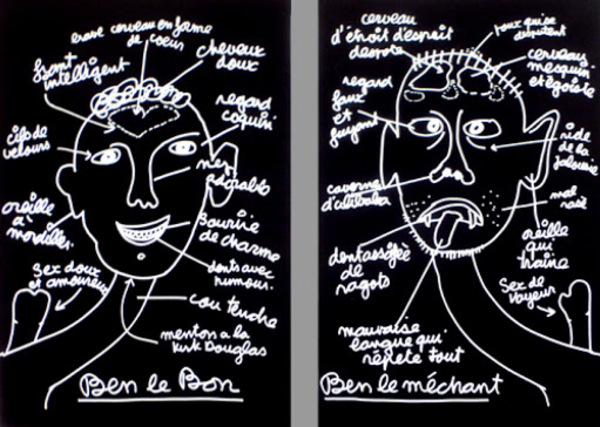 crane cerveau en forme
de coeur
front
intelligent
cheveux
doux
regard
coquin
cils de
velours
nez
adorable
oreille
a
mordiller
sourire
de charme
dents avec
humour
sex doux
et amoureux
cou tendre
menton a la
Kirk Douglas
Ben le Bon
cerveau
d'étroit d'esprit
despote
poux qui se
disputent
cerveau
mesquin
et égoiste
regard
faux
et
fuyant
ride
de la
jalousie
caverne
d'alibaba
mal
rasé
dent assoifée
de
ragots
oreille
qui
traine
Sex de
voyeur
mauvaise
langue qui
répète tout
Ben le méchant